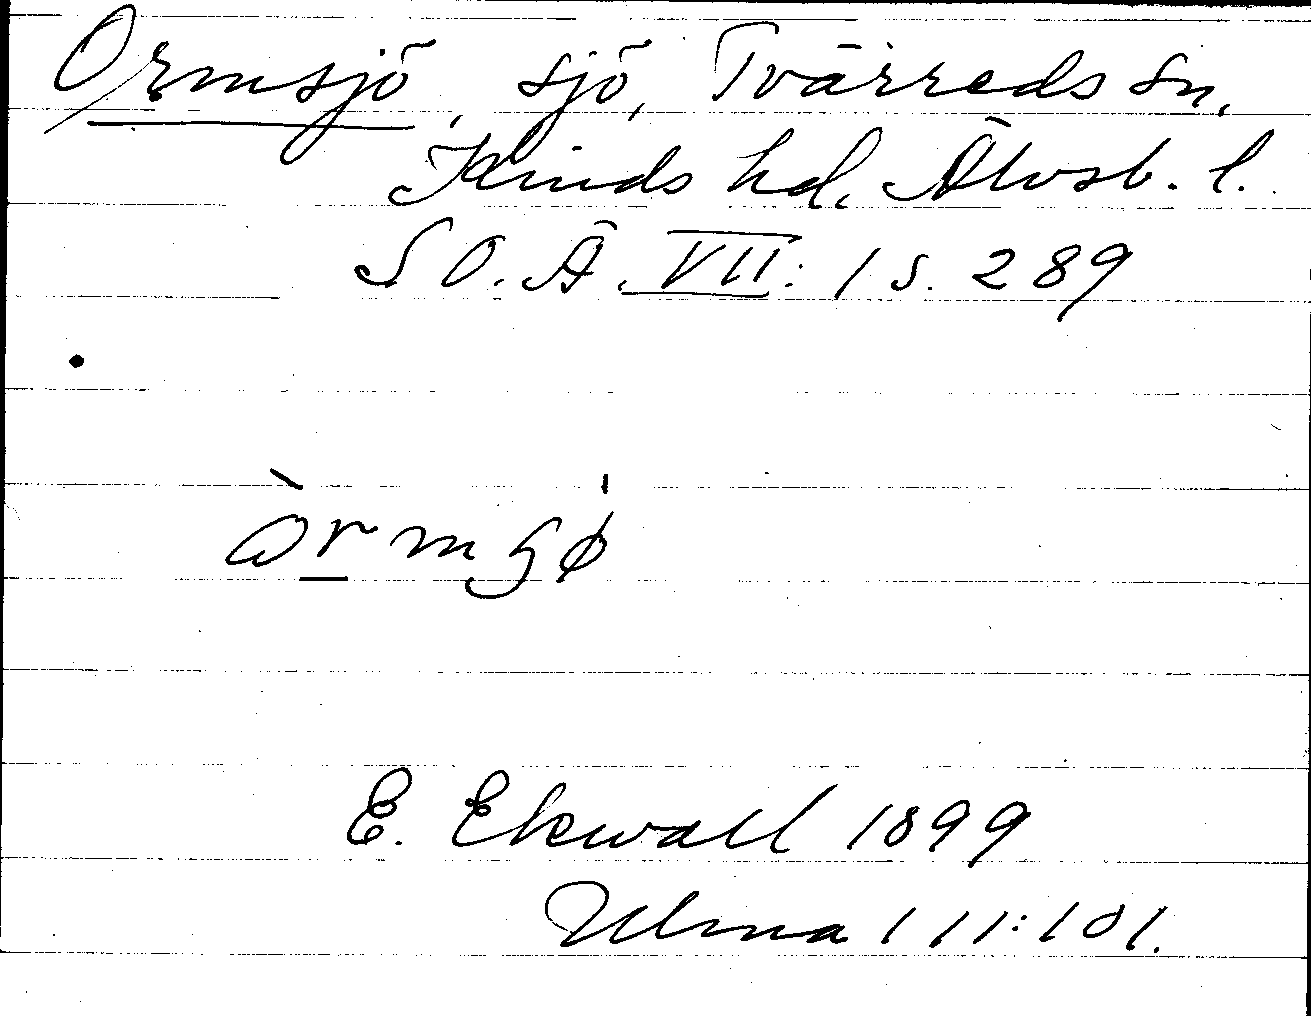 Ormsjö, sjö, Tvärreds sn,
Kinds hd, Älvsb. l.
SO.Ä. VII: 1 s. 289
E. Ekwall 1899
Ulma 111:101.